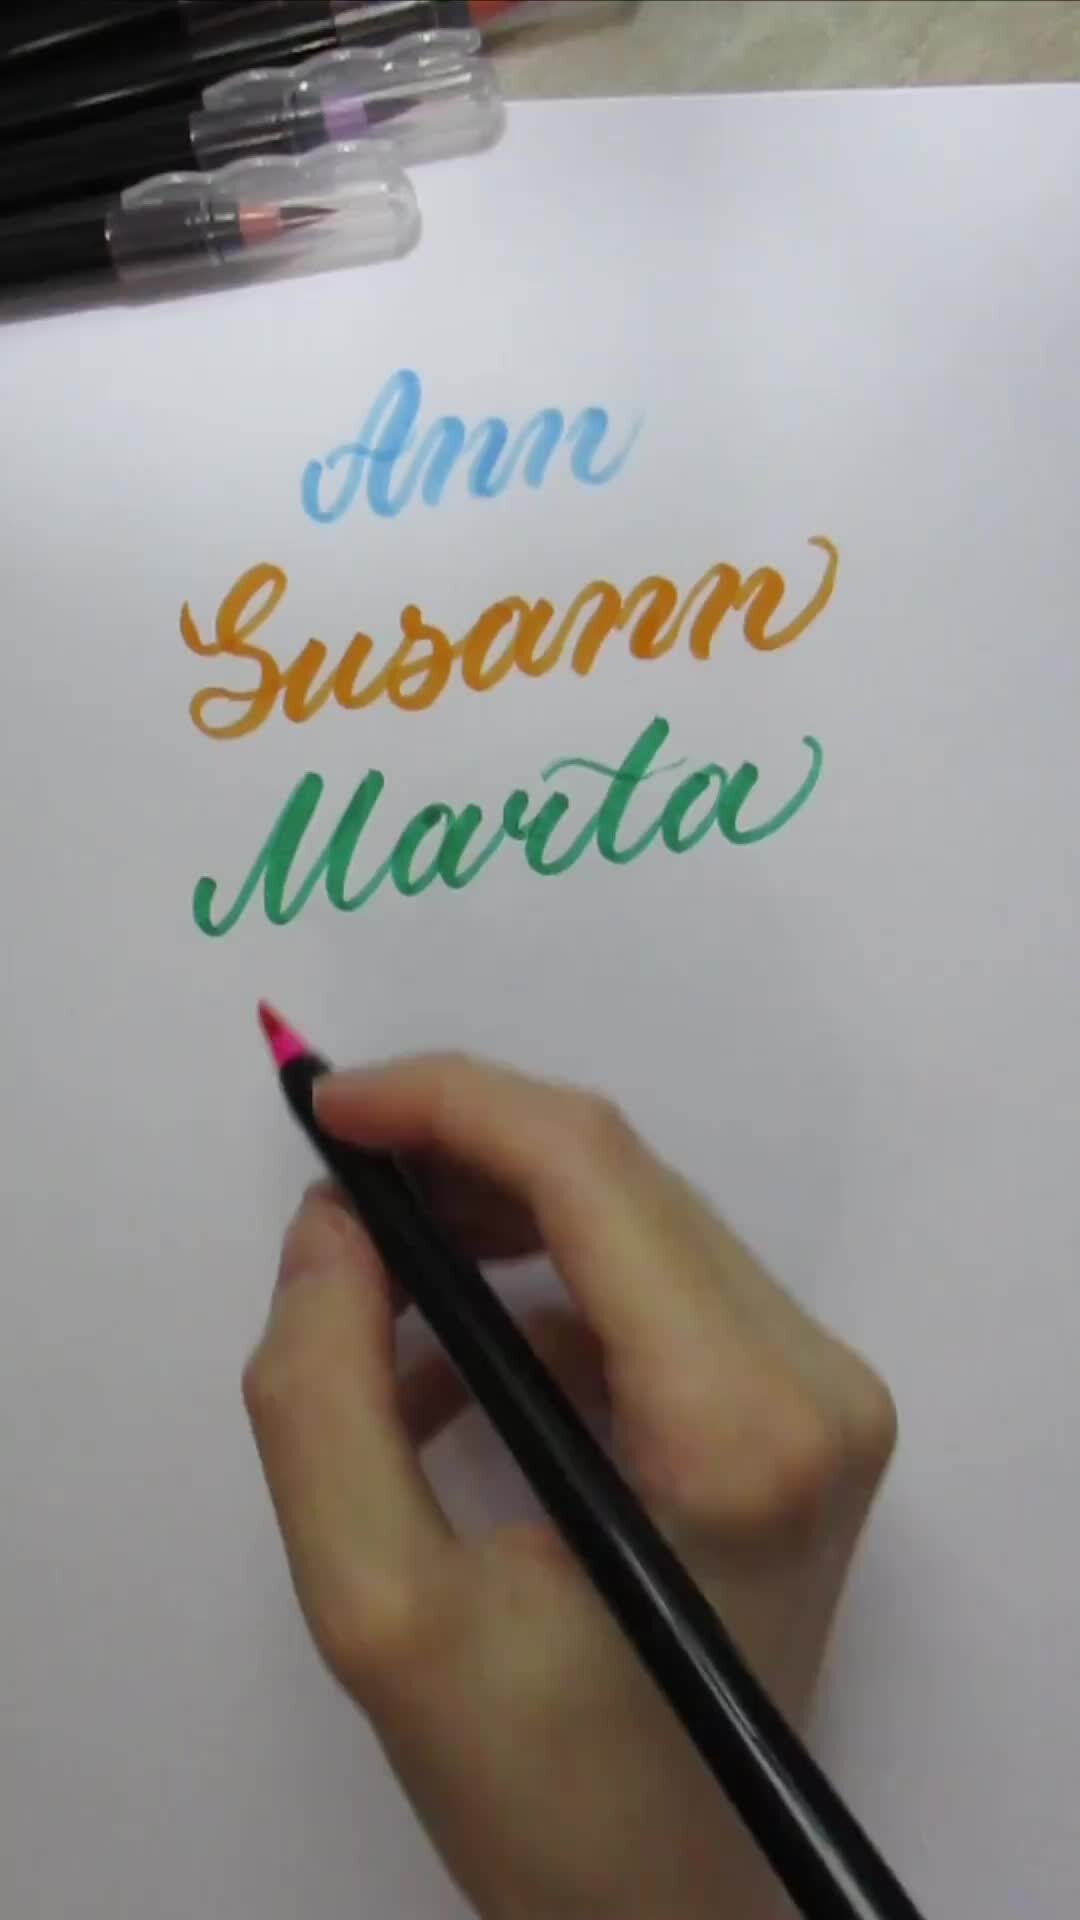 Ann
Susann
Marta